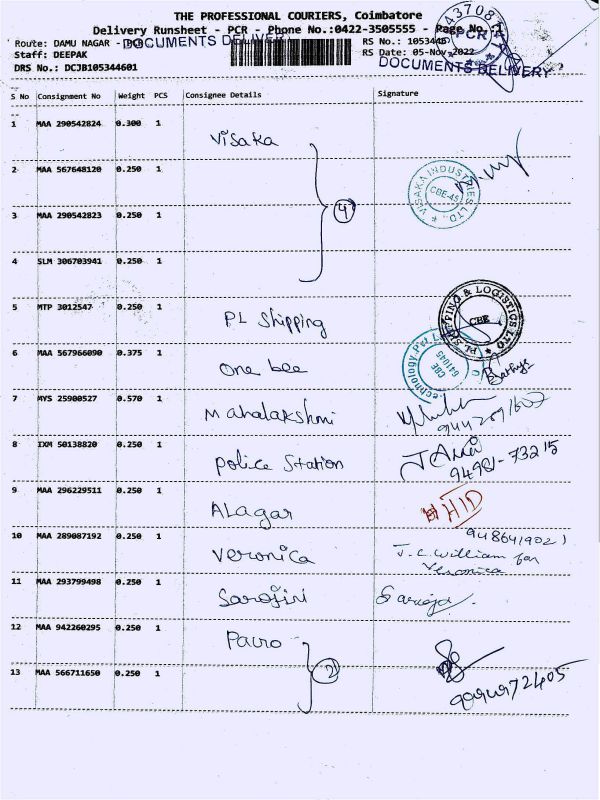 THE PROFESSIONAL COURIERS, Coimbatore
Delivery Runsheet - PCR - Phone No.:0422-3505555 - Page No.:
Route: DAMU NAGAR - PCR
DOCUMENTS DELIVERY
Staff: DEEPAK
RS Date: 05-Nov-2022
DOCUMENTS DELIVERY
DRS No.: DCJB105344601
S No Consignment No Weight PCS Consignee Details Signature
1 MAA 290542824 0.300 1 Visaka
2 MAA 567648120 0.250 1
VISAKA INDUSTRIES LTD.
CBE-45
3 MAA 290542823 0.250 1
4
4 SLM 306703941 0.250 1
5 MTP 3012547 0.250 1 PL Shipping
PL SHIPPING & LOGISTICS LTD
CBE
6 MAA 567966090 0.375 1 One bee
CBE
641045
7 MYS 25900527 0.570 1 Mahalakshmi
8 IXM 50138820 0.250 1 Police Station
9 MAA 296229511 0.250 1 ALagar
HID
10 MAA 289087192 0.250 1 Veronica
J.C. William for
Veronica
11 MAA 293799498 0.250 1 Sarojini Saroja
12 MAA 942260295 0.250 1 Pavro
13 MAA 566711650 0.250 1
2